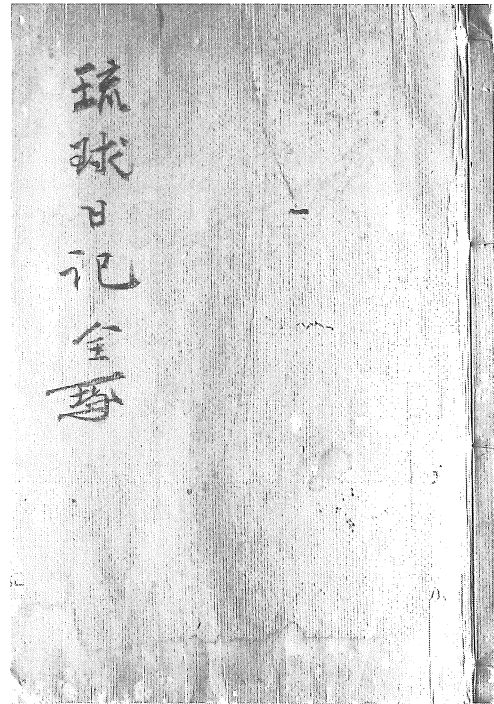 琉球日记 全